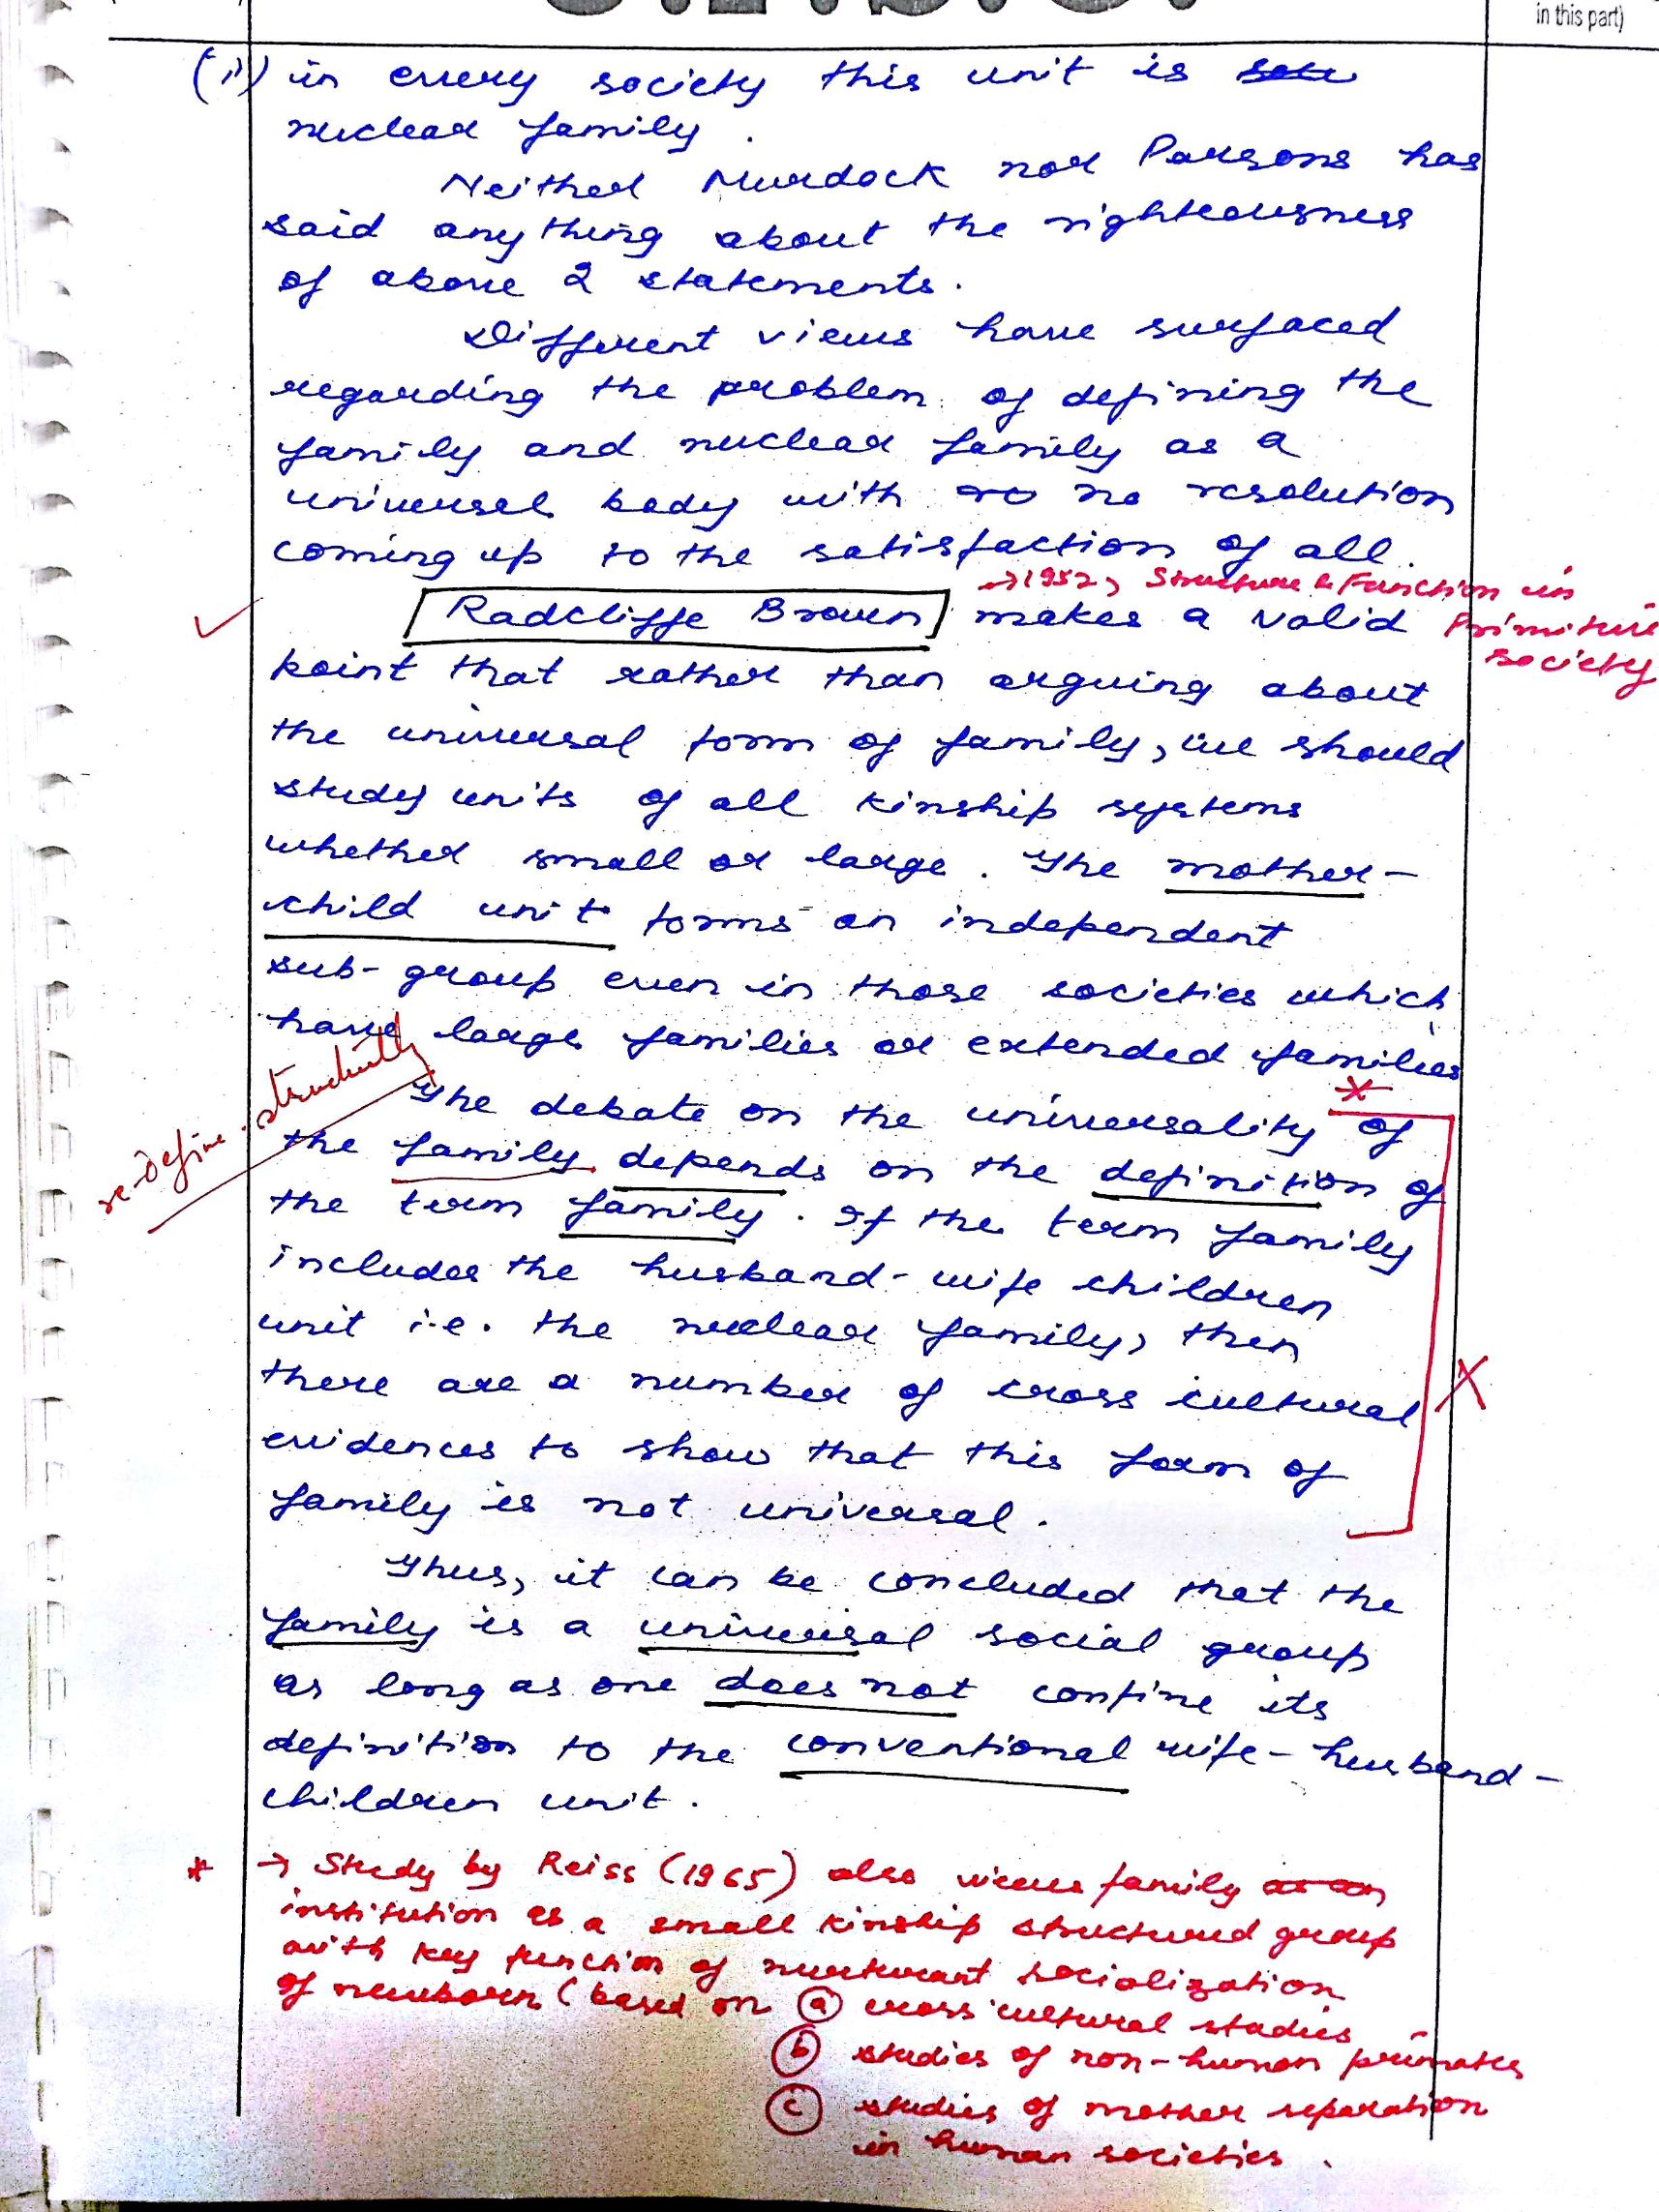 in this part)
(ii) in every society this unit is
nuclear family.
Neither Murdock nor Parsons has
said anything about the righteousness
of above 2 statements.
Different views have surfaced
regarding the problem of defining the
family and nuclear family as a
universel body with no no resolution
coming up to the satisfaction of all.
→ 1952, Structure & Function in
Primitive
society
Radcliffe Brown makes a valid
point that rather than arguing about
the universal form of family, we should
study units of all kinship systems
whether small or large. The mother-
child unit forms an independent
sub-group even in those societies which
have large families or extended families
*
re-define
The debate on the universality of
the family depends on the definition of
the term family. If the term family
includes the husband-wife children
unit i.e. the nuclear family, then
there are a number of cross cultural
evidences to show that this form of
family is not universal.
X
Thus, it can be concluded that the
family is a universal social group
as long as one does not confine its
definition to the conventional wife-husband-
children unit.
* → Study by Reiss (1965) also views family as an
institution as a small kinship structured group
with key function of nurturant socialization
of newborn (based on (a) cross cultural studies
(b) studies of non-human primates
(c) studies of mother separation
in human societies.